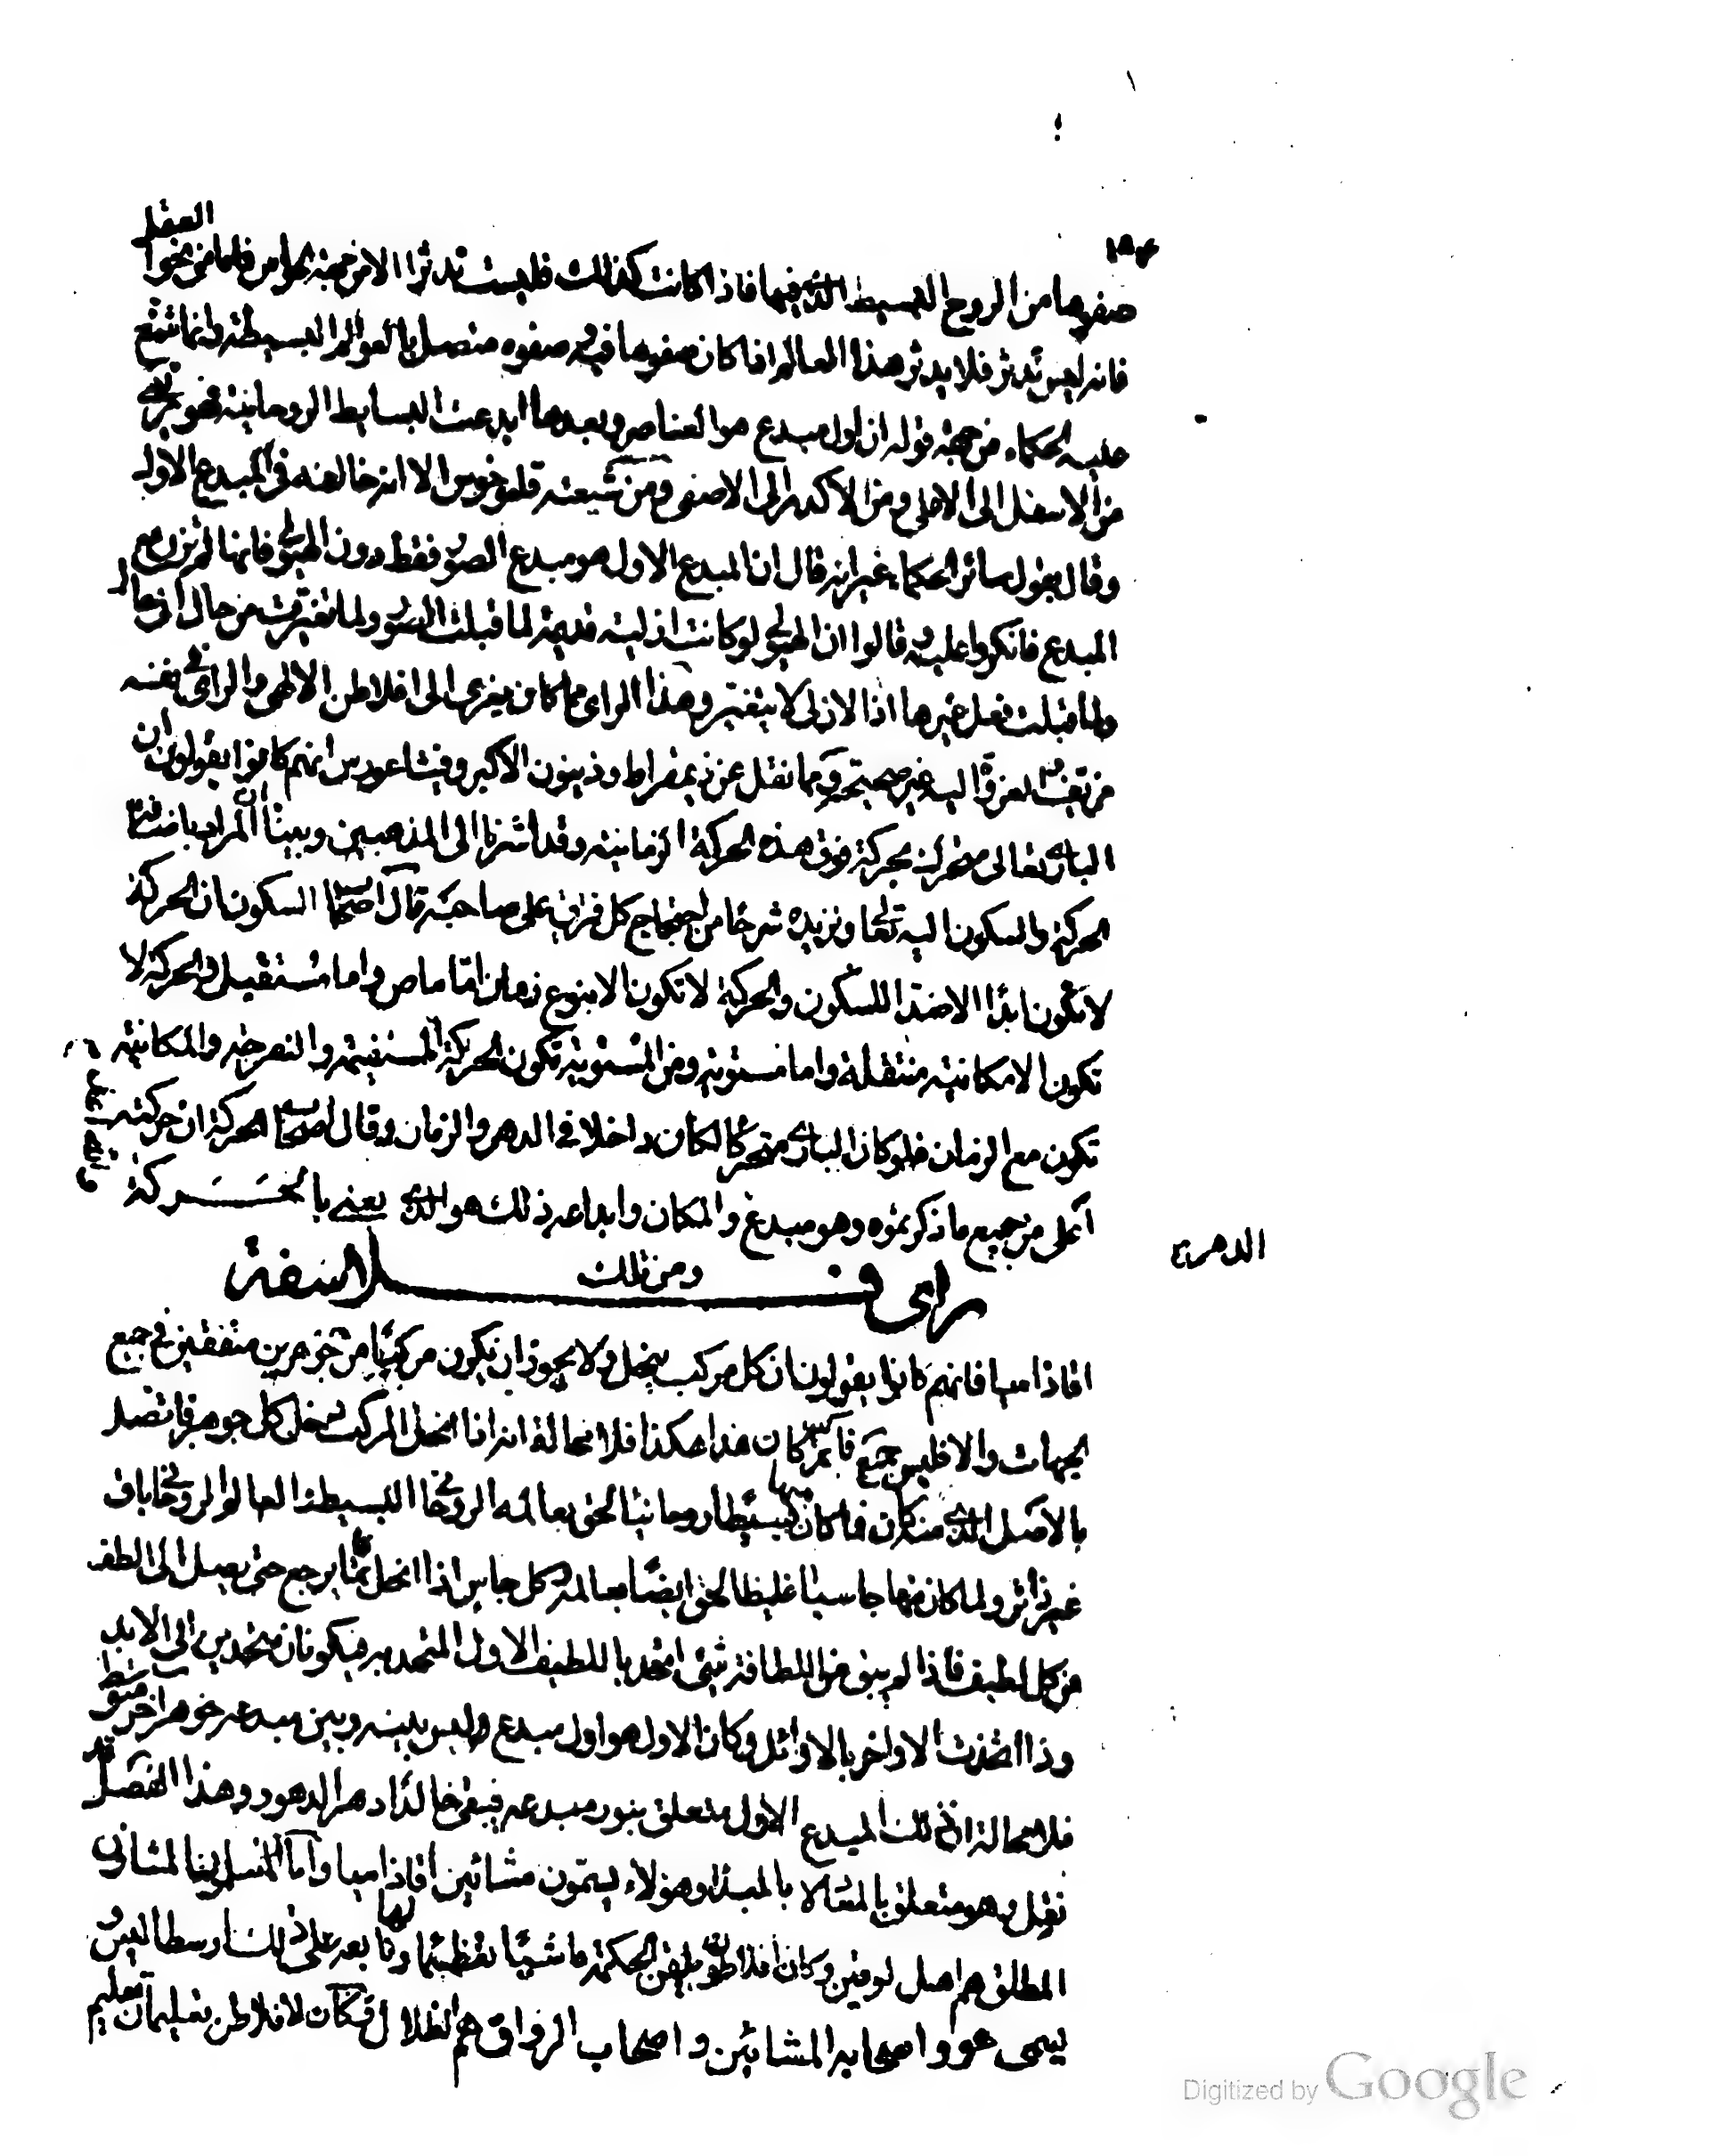 ١٥٤
صفوها من الروح البسيط الذي فيها فاذا كانت كذلك فليست تدثر الا من جهة الحواس فاما من نحو العقل
فانه ليس تدثر فلا يدثر هذا العالم اذا كان صفوها فيه و صفوه متصل بالعوالم البسيطة وانما شنع
عليه الحكماء من جهة قوله ان اول مبدع هو العناصر وبعدها ابدعت البسايط الروحانية فهو يرتقى
من الاسفل الى الاعلى ومن الاكدر الى الاصفى ومن شيعته قلموخوس الا انه خالفه في المبدع الاول
وقال بقول سائر الحكماء غير انه قال ان المبدع الاول هو مبدع الصور فقط دون الهيولى فانها لم تزل مع
المبدع فانكروا عليه و قالوا ان الهيولى لو كانت ازلية قديمة لما قبلت الصور ولما تغيرت من حال الى حال
ولما قبلت فعل غيرها اذا الازلى لا يتغير وهذا الراى مما كان يعزى الى افلاطن الالهى والراى في نفسه
مزيف والعزوة اليه غير صحيحة ومما نقل عن ذيمقراط وذينون الاكبر وفيثاغورس انهم كانوا يقولون ان
البارى تعالى متحرك بحركة فوق هذه الحركة الزمانية وقد اشرنا الى المذهبين وبينا ان المراد باضافة
الحركة والسكون اليه تعالى ونزيده شرحا من احتجاج كل فريق على صاحبه قال اصحاب السكون ان الحركة
لا تكون ابدًا الا ضد للسكون والحركة لا تكون الا بنوع زمان اما ماض واما مستقبل والحركة لا
تكون الا مكانية منتقلة واما مستوية ومن المستوية تكون الحركة المستقيمة والتعرجة والمكانية
تكون مع الزمان فلو كان البارى متحركا لكان داخلا في الدهر والزمان وقال اصحاب الحركة ان حركته
اعلى من جميع ما ذكرتموه وهو مبدع والمكان وابداعه ذلك هو الذي يعنى بالحركة
الدهر
ومن ذلك
راى فلاسفة
اقاذاميا فانهم كانوا يقولون ان كل مركب ينحل ولا يجوز ان يكون مركبًا من جوهرين متفقين في جميع
الجهات والا فليس بمركب فاذا كان هذا هكذا فلا محالة انه اذا انحل المركب دخل كل جوهر فاتصل
بالاصل الذي منه كان فما كان منها بسيطا روحانيا لحق بعالمه الروحاني البسيط والعالم الروحاني باق
غير داثر ولما كان منها جاسيا غليظا لحق ايضًا بعالمه وكل جاس اذا انحل فانما يرجع حتى يصل الى الطف
من كل لطيف فاذا لم يبق من اللطافة شئ اتحد باللطيف الاول المتحد به فيكونان متحدين الى الابد
وذا اتحدت الاواخر بالاوائل وكان الاول هو اول مبدع وليس بينه وبين مبدعه جوهر اخر متوسط
فلا محالة ان ذلك المبدع الاول متعلق بنور مبدعه فيبقى خالدًا دهر الدهور وهذا الفصل قد
نقل وهو متعلق بالمعاد لا بالمبدأ وهؤلاء يسمون مشائين اقاذاميا واما المشاؤن
المطلق هم اهل لوقين وكان افلاطون يلقن الحكمة ماشيًا تعظيمًا لها وتابعه على ذلك ارسطاليس و
يسمى هو و اصحابه المشائين و اصحاب الرواق هم اهل الظلال وكان لافلاطن تعليمان تعليم
Digitized by Google